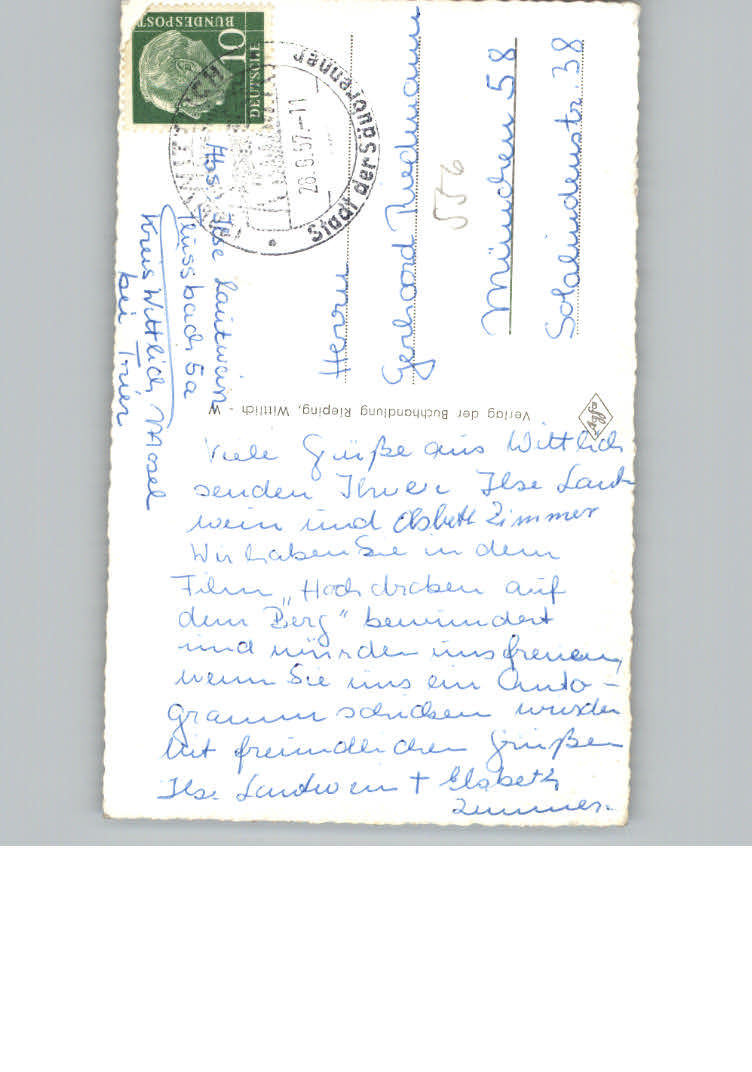 DEUTSCHE
BUNDESPOST
10
WITTLICH
Stadt der Säubrenner
26.8.57.-11
Abs. Ilse Lautwein
Flussbach 5a
Kreis Wittlich Mosel
bei Trier
Herrn
Gerhard Riedmann
556
München 58
Solalindenstr. 38
Verlag der Buchhandlung Rieping, Wittlich - W
Viele Grüße aus Wittlich
senden Ihnen Ilse Laut
wein und Elsbeth Zimmer
Wir haben Sie in dem
Film „Hoch droben auf
dem Berg" bewundert
und würden uns freuen,
wenn Sie uns ein Auto-
gramm schicken würden
Mit freundlichen Grüßen
Ilse Lautwein + Elsbeth
Zimmer.